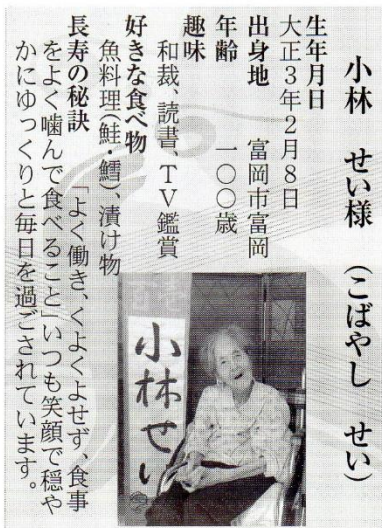 小林　せい様　（こばやし　せい）
生年月日
大正3年2月8日
出身地　富岡市富岡
年齢　一〇〇歳
趣味
和裁、読書、TV鑑賞
好きな食べ物
魚料理(鮭・鱈)、漬け物
長寿の秘訣
「よく働き、くよくよせず、食事
をよく噛んで食べること」いつも笑顔で穏や
かにゆっくりと毎日を過ごされています。
小林せい